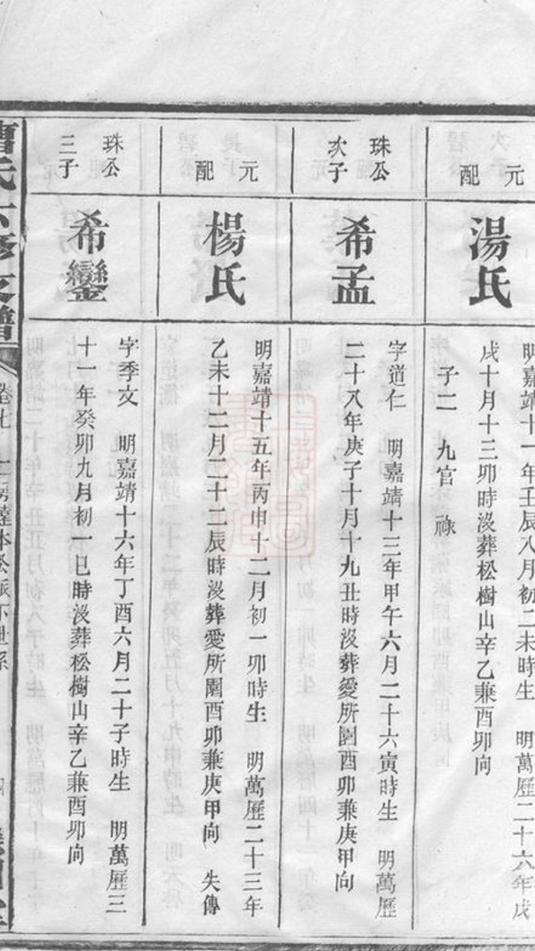 元配
湯氏
明嘉靖十一年壬辰八月初二未時生 明萬歷二十六年戊
戌十月十三卯時沒葬松樹山辛乙兼酉卯向
子二 九官 祿
珠公次子
希孟
字道仁 明嘉靖十三年甲午六月二十六寅時生 明萬歷
二十八年庚子十月十九丑時沒葬愛所園酉卯兼庚甲向
元配
楊氏
明嘉靖十五年丙申十二月初一卯時生 明萬歷二十三年
乙未十二月二十二辰時沒葬愛所園酉卯兼庚甲向 失傳
珠公三子
希鑾
字季文 明嘉靖十六年丁酉六月二十子時生 明萬歷三
十一年癸卯九月初一巳時沒葬松樹山辛乙兼酉卯向
曹氏六修支譜
卷七